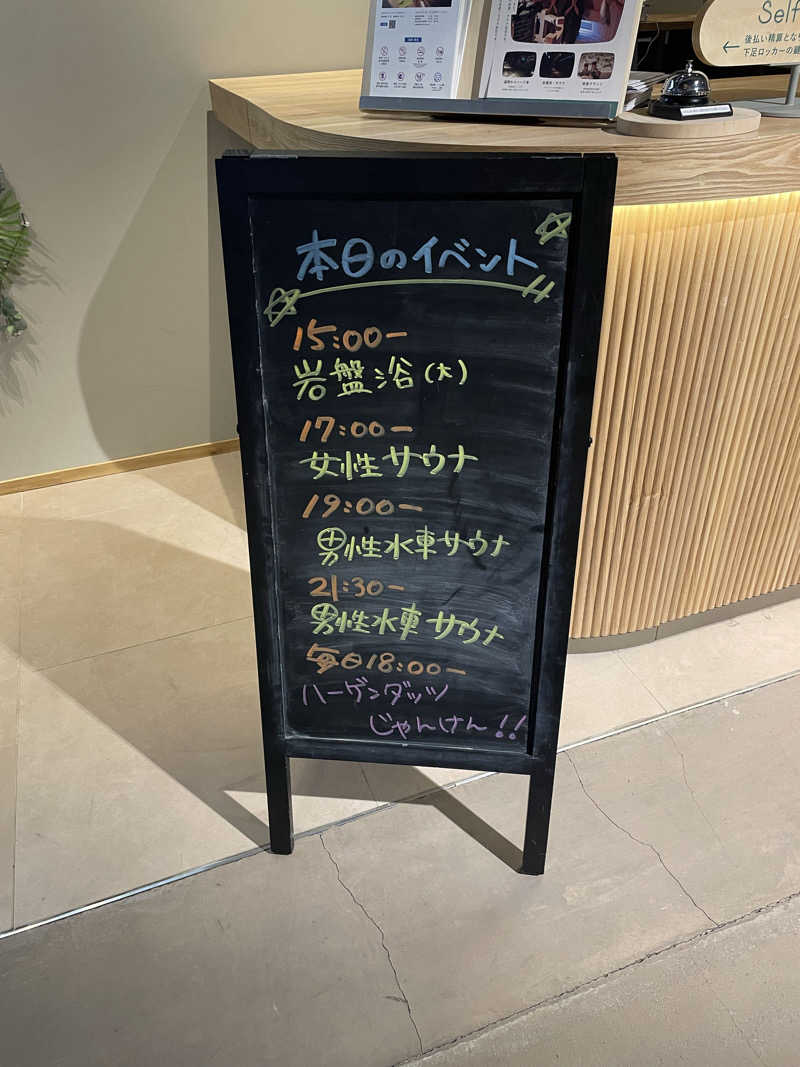 Self
後払い精算とな
← 下足ロッカーの鍵
本日のイベント
15:00ー
岩盤浴(大)
17:00ー
女性サウナ
19:00ー
男性水車サウナ
21:30ー
男性水車サウナ
毎日18:00ー
ハーゲンダッツ
じゃんけん!!